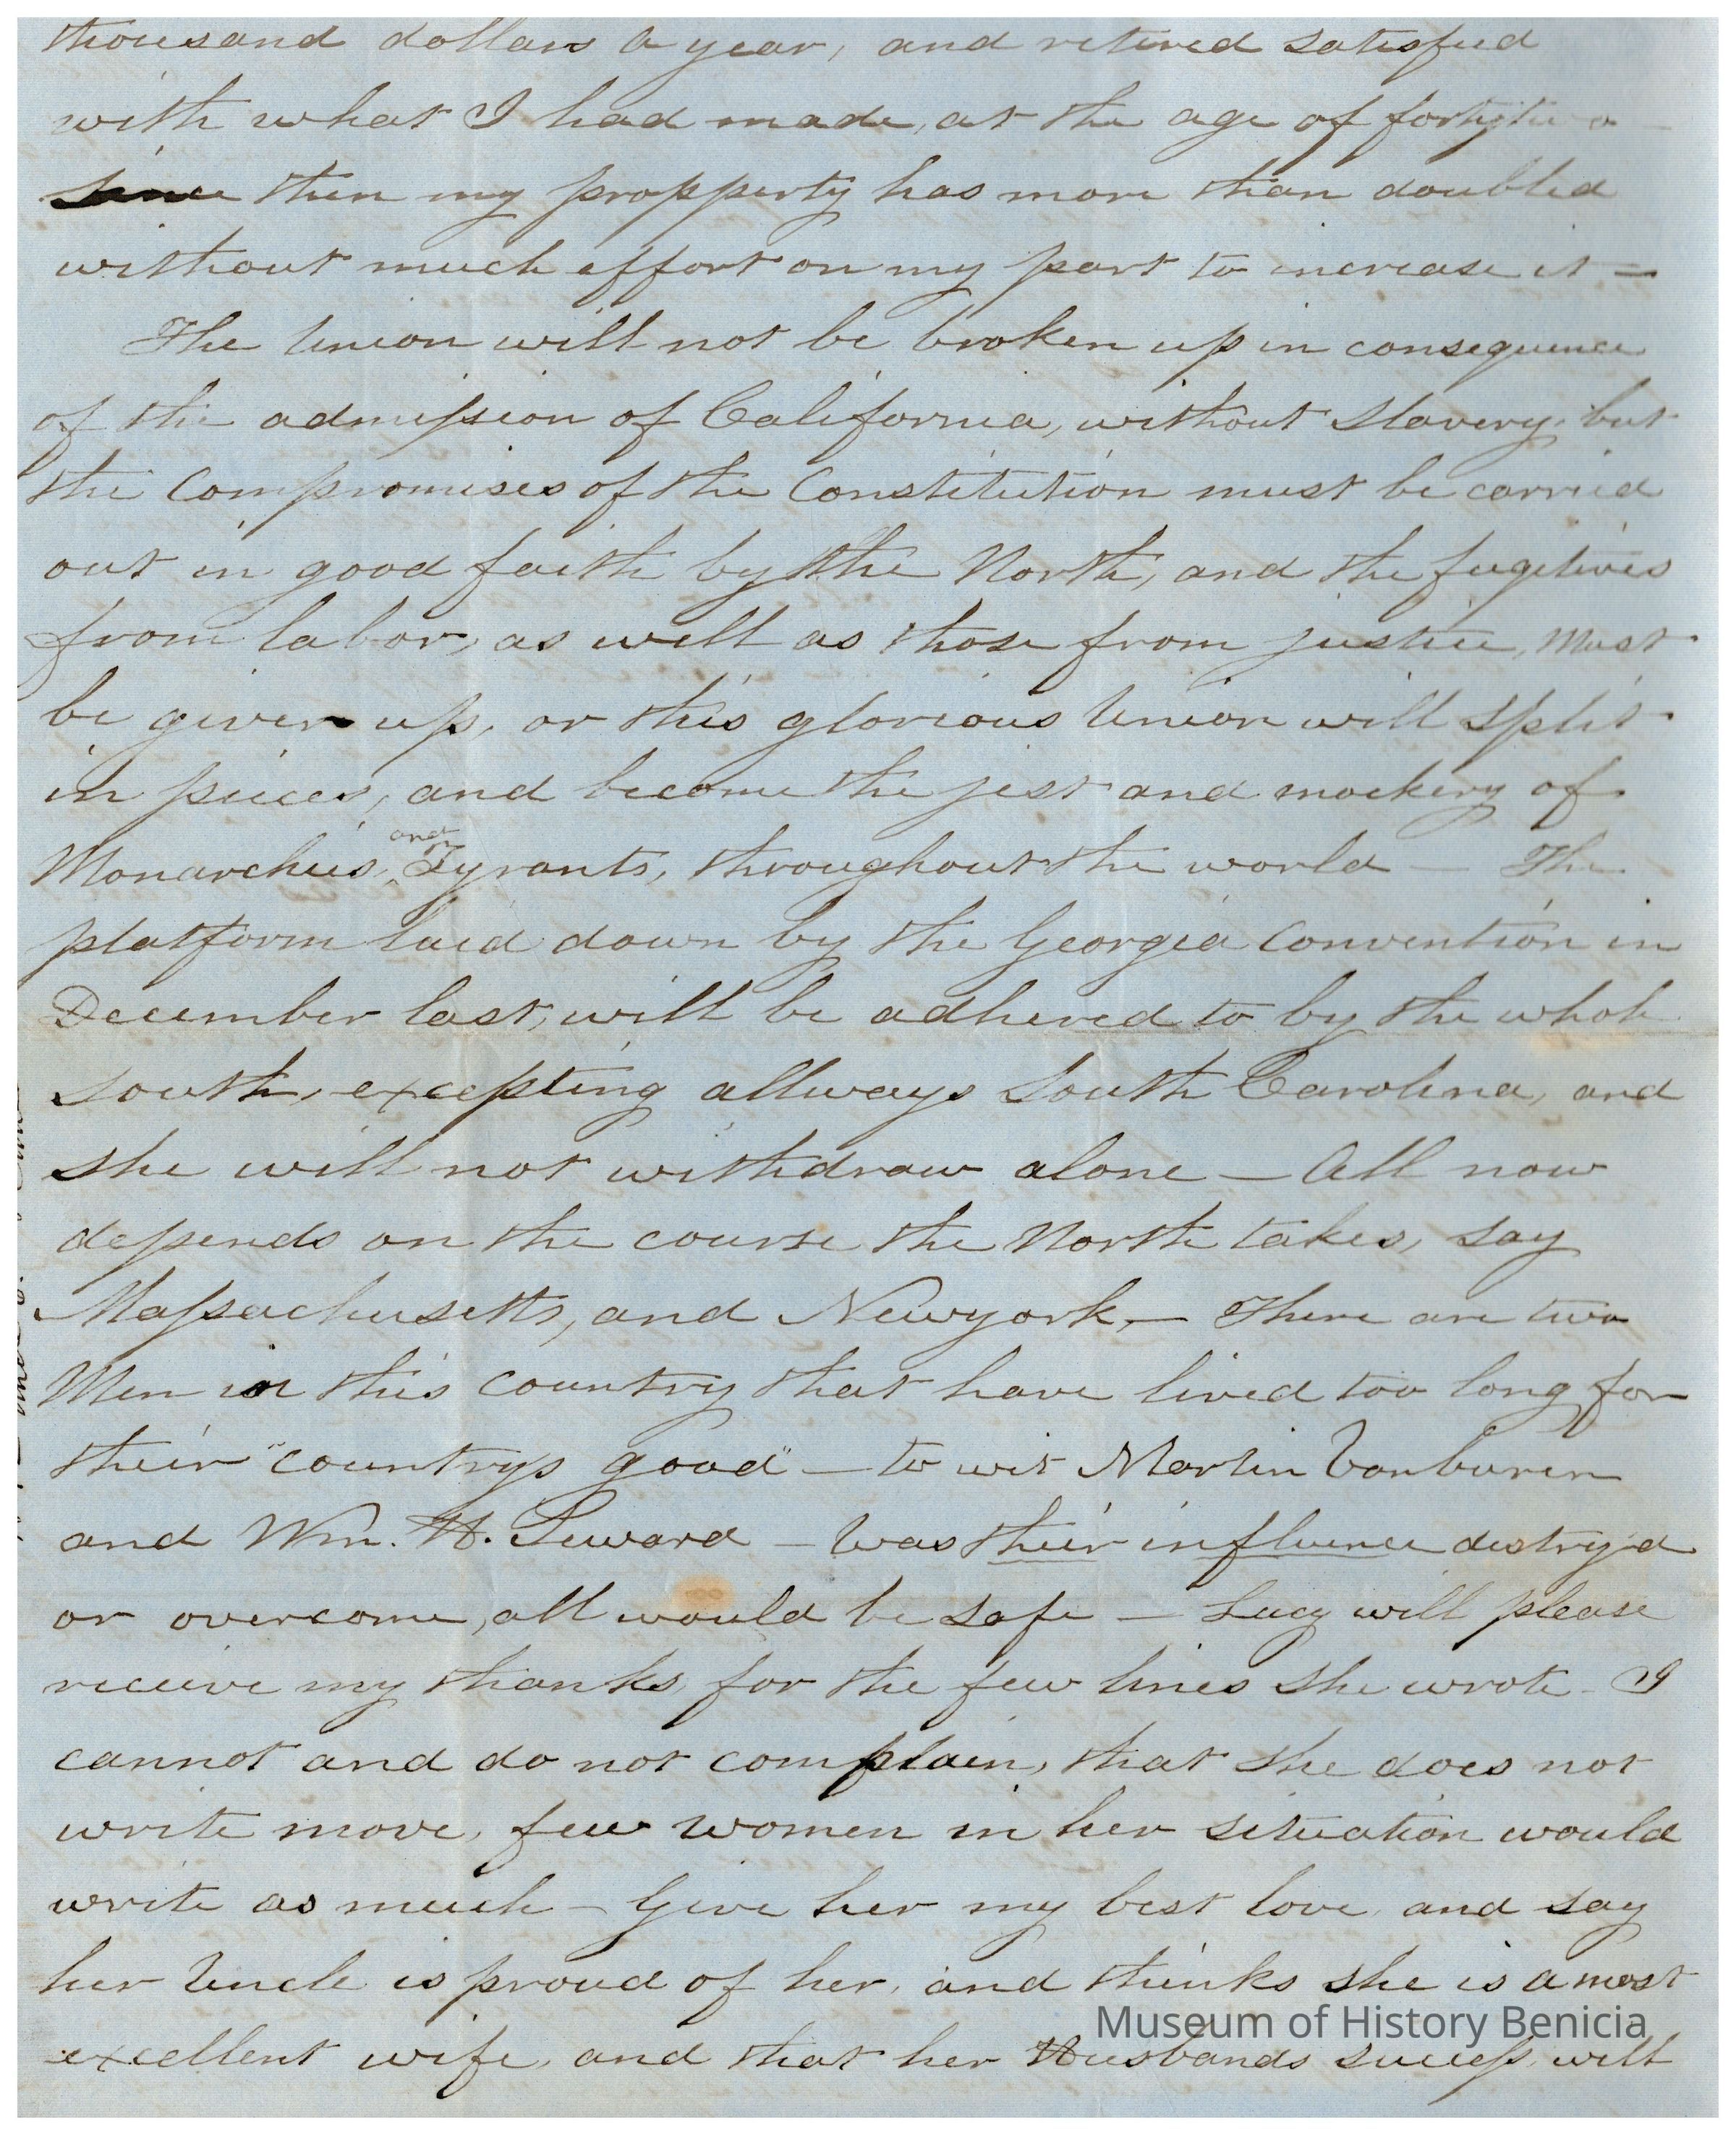 thousand dollars a year, and retired satisfied
with what I had made, at the age of fortytwo
since then my propperty has more than doubled
without much effort on my part to increase it —
The Union will not be broken up in consequence
of the admission of California, without Slavery, but
the Compromises of the Constitution must be carried
out in good faith by the North, and the fugitives
from labor, as well as those from justice, must
be given up, or this glorious Union will split
in pieces, and become the jest and mockery of
Monarchies, and Tyrants, throughout the world — The
platform laid down by the Georgia Convention in
December last, will be adhered to by the whole
South, excepting allways South Carolina, and
she will not withdraw alone — All now
depends on the course the North takes, say
Massachusetts, and Newyork, — There are two
Men in this country that have lived too long for
their "countrys good" — to wit Martin Vanburen
and Wm. H. Seward — Was their influence distry'd
or overcome, all would be safe — Lucy will please
receive my thanks for the few lines she wrote. I
cannot and do not complain, that she does not
write more, few women in her situation would
write as much — Give her my best love, and say
her Uncle is proud of her, and thinks she is a most
excellent wife, and that her Husbands success, will
Museum of History Benicia